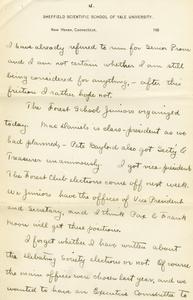 4.
SHEFFIELD SCIENTIFIC SCHOOL OF YALE UNIVERSITY.
New Haven, Connecticut. 190
I have already refused to run for Senior Prom
and I am not certain whether I am still
being considered for anything, - after this
friction I rather hope not.
The Forest School Juniors organized
today. Mac Daniels is class-president as we
had planned, - Pete Baylord also got Sect'y &
Treasurer unanimously. I got vice-president.
The Forest Club elections come off next week.
We Juniors have the offices of Vice President
and Secretary, and I think Pax & Frank
Moore will get those positions.
I forget whether I have written about
the debating Society elections or not. Of course
the main offices were chosen last year, and we
wanted to have an Executive Committee to